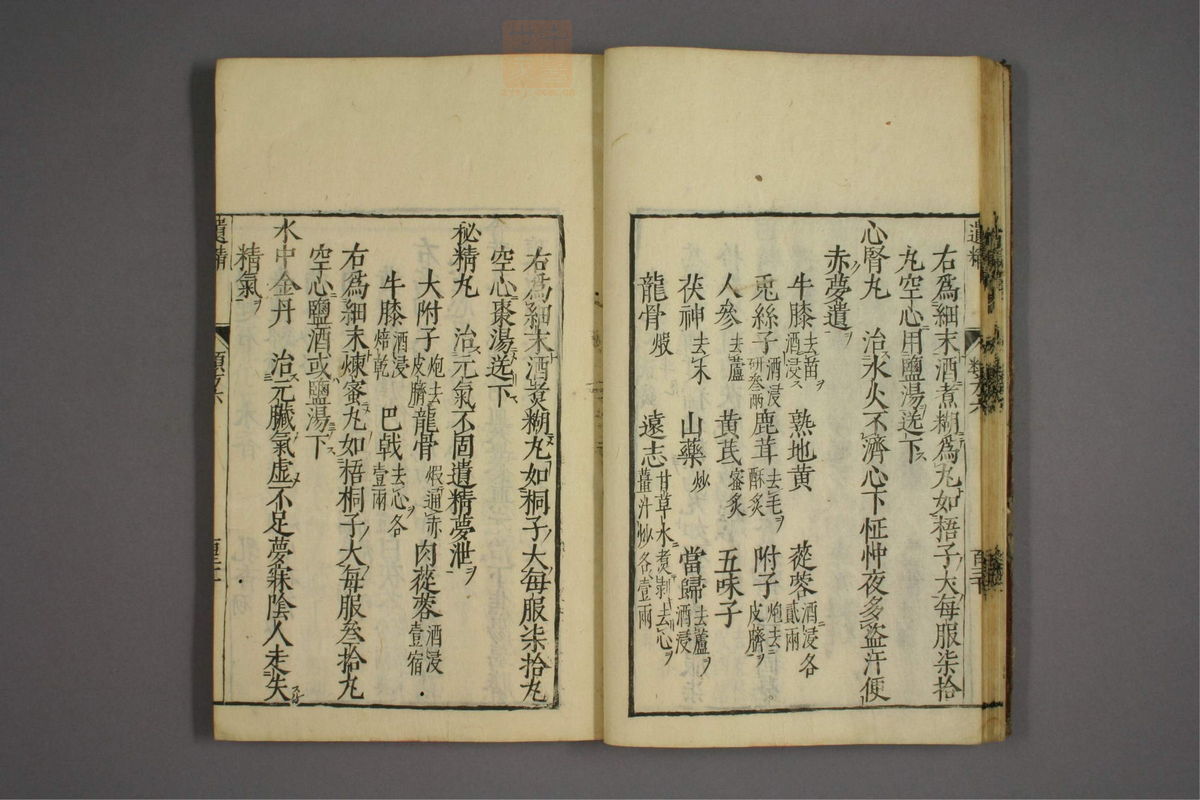 遺精
右爲細末酒煮糊爲丸如梧子大每服柒拾
丸空心用鹽湯送下
心腎丸 治水火不濟心下怔忡夜多盜汗便
赤夢遺
牛膝去苗酒浸 熟地黃 蓯蓉酒浸各貳兩
兎絲子酒浸研叁兩 鹿茸去毛酥炙 附子炮去皮臍
人參去蘆 黃芪蜜炙 五味子
茯神去木 山藥炒 當歸去蘆酒浸
龍骨煅 遠志甘草水煮剝去心薑汁炒各壹兩
右爲細末酒煮糊丸如桐子大每服柒拾丸
空心棗湯送下
秘精丸 治元氣不固遺精夢泄
大附子炮去皮臍 龍骨煅通赤 肉蓯蓉酒浸壹宿
牛膝酒浸焙乾 巴戟去心各壹兩
右爲細末煉蜜丸如梧桐子大每服叁拾丸
空心鹽酒或鹽湯下
水中金丹 治元臟氣虛不足夢寐陰人走失
精氣
遺精